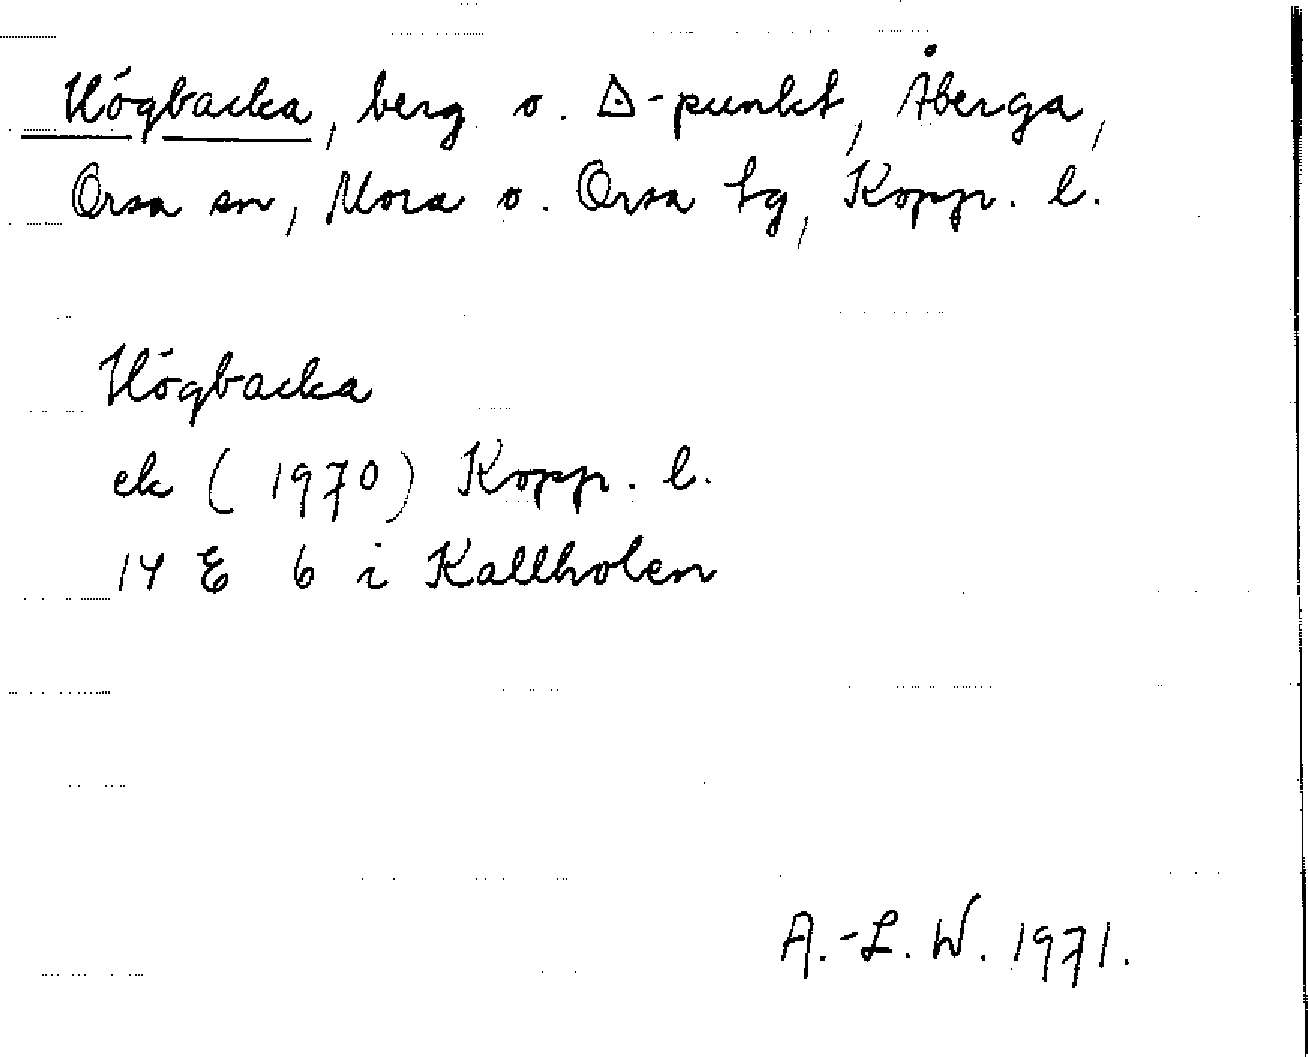 Högbacka, berg o. △-punkt, Åberga,
Orsa sn, Mora o. Orsa tg, Kopp. l.
Högbacka
ek (1970) Kopp. l.
14 E 6 i Kallholen
A.-L. W. 1971.